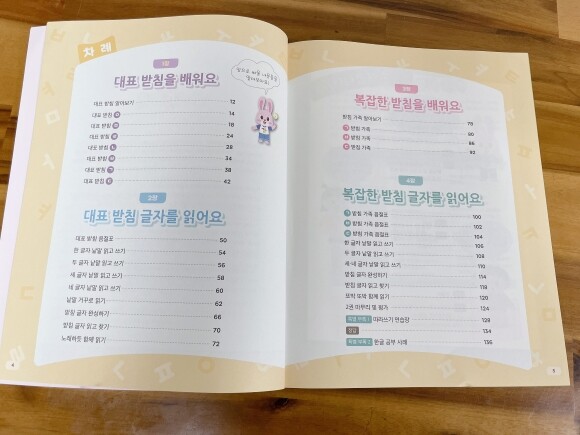 차례
1장
대표 받침을 배워요
대표 받침 알아보기 12
대표 받침 14
대표 받침 18
대표 받침 24
대표 받침 28
대표 받침 34
대표 받침 38
대표 받침 42
2장
대표 받침 글자를 읽어요
대표 받침 음절표 50
한 글자 낱말 읽고 쓰기 54
두 글자 낱말 읽고 쓰기 56
세 글자 낱말 읽고 쓰기 58
네 글자 낱말 읽고 쓰기 60
낱말 거꾸로 읽기 62
받침 글자 완성하기 66
받침 글자 읽고 찾기 70
노래하듯 함께 읽기 72
4
3장
복잡한 받침을 배워요
받침 가족 알아보기 78
ㄱ 받침 가족 80
받침 가족 86
ㄷ 받침 가족 92
4장
복잡한 받침 글자를 읽어요
ㄱ 받침 가족 음절표 100
받침 가족 음절표 102
받침 가족 음절표 104
한 글자 낱말 읽고 쓰기 106
두 글자 낱말 읽고 쓰기 108
세·네 글자 낱말 읽고 쓰기 110
받침 글자 완성하기 114
받침 글자 읽고 찾기 118
또박 또박 함께 읽기 120
2권 마무리 및 평가 124
특별 부록 1 따라쓰기 연습장 128
정답 134
특별 부록 2 한글 공부 사례 136
5